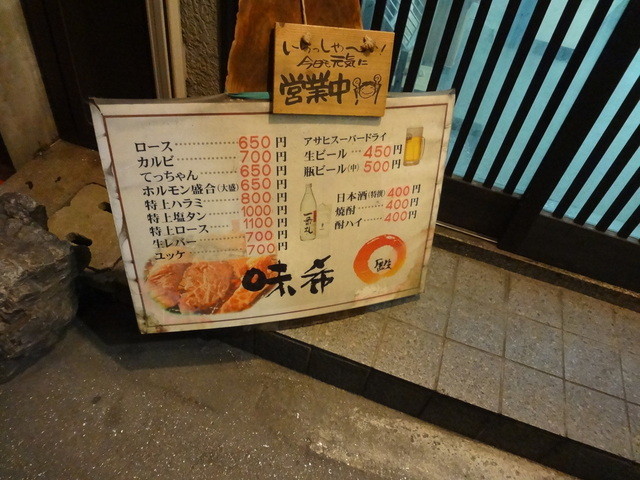 いらっしゃ〜い!
今日も元気に
営業中
ロース 650円
カルビ 700円
てっちゃん 650円
ホルモン盛合(大盛) 650円
特上ハラミ 800円
特上塩タン 1000円
特上ロース 1100円
生レバー 700円
ユッケ 700円
アサヒスーパードライ
生ビール 450円
瓶ビール(中) 500円
日本酒(特撰) 400円
焼酎 400円
酎ハイ 400円
味希